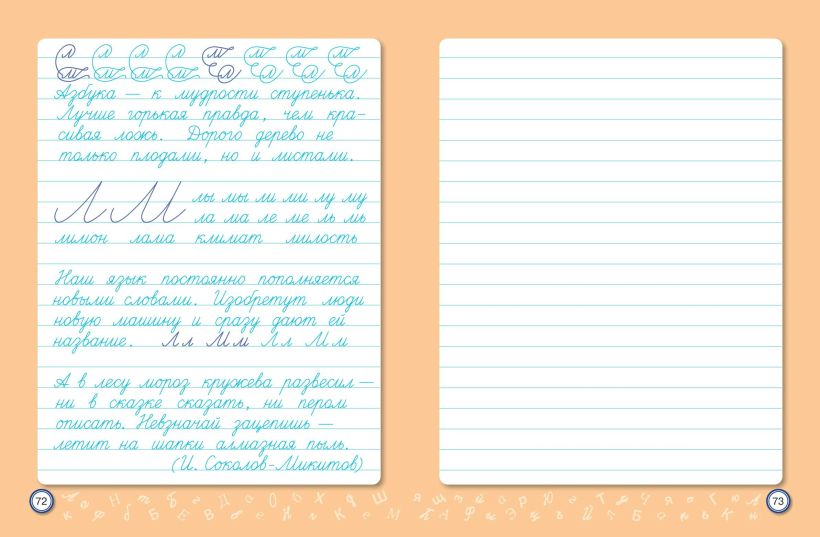 Азбука — к мудрости ступенька.
Лучше горькая правда, чем кра-
сивая ложь. Дорого дерево не
только плодами, но и листами.
Л М лы мы ли ми лу му
ла ма ле ме ль мь
лимон лама климат милость
Наш язык постоянно пополняется
новыми словами. Изобретут люди
новую машину и сразу дают ей
название. Лл Мм Лл Мм
А в лесу мороз кружева развесил —
ни в сказке сказать, ни пером
описать. Невзначай зацепишь —
летит на шапки алмазная пыль.
(И. Соколов-Микитов)
72
73